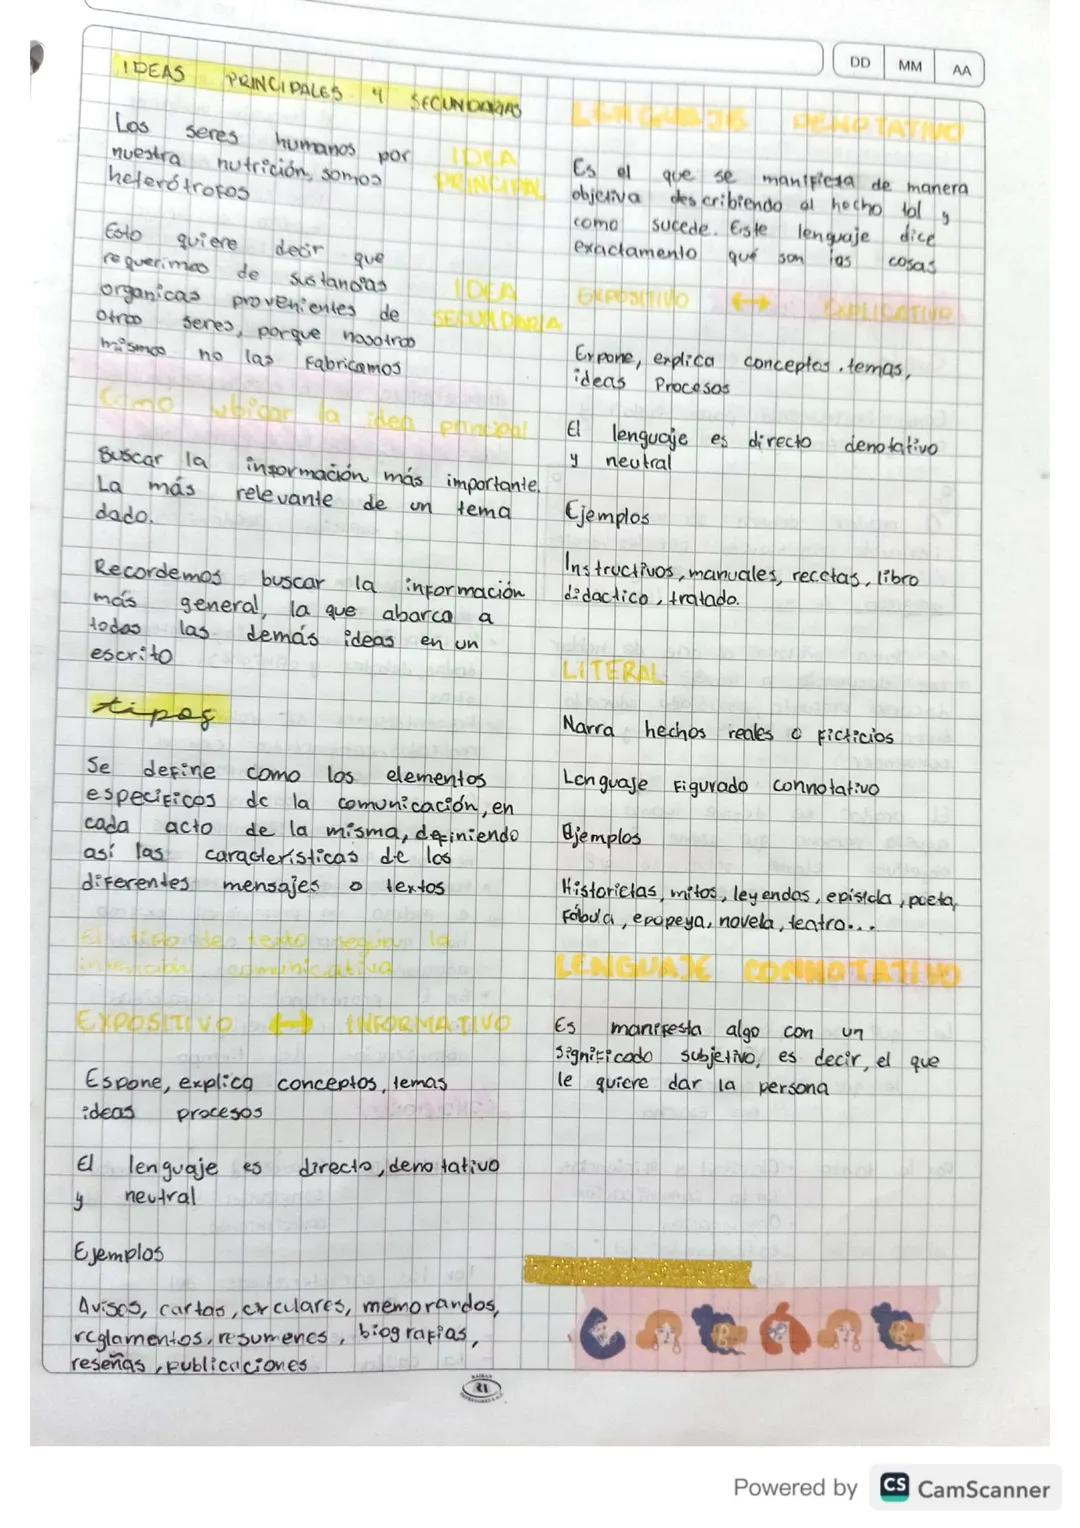 DD MM AA
IDEAS PRINCIPALES Y SECUNDARIAS
Los seres humanos por
nuestra nutrición, somos
heterótrofos
IDEA
PRINCIPAL
Esto quiere decir que
requerimos de sustancias
organicas provenientes de
otros seres, porque nosotros
mismos no las fabricamos
IDEA
SECUNDARIA
Como ubicar la idea principal
Buscar la información más importante.
La más relevante de un tema
dado.
Recordemos buscar la información
más general, la que abarca a
todas las demás ideas en un
escrito
tipos
Se define como los elementos
especificos de la comunicación, en
cada acto de la misma, definiendo
así las características de los
diferentes mensajes o textos
El tipo de texto segun la
intención comunicativa
EXPOSITIVO ↔ INFORMATIVO
Espone, explica conceptos, temas
ideas procesos
El lenguaje es directo, denotativo
y neutral
Ejemplos
Avisos, cartas, circulares, memorandos,
reglamentos, resumenes, biografias,
reseñas, publicaciones
LENGUAJE DENOTATIVO
Es el que se manifiesta de manera
objetiva describiendo al hecho tal y
como sucede. Este lenguaje dice
exactamento qué son las cosas
EXPOSITIVO ↔ EXPLICATIVO
Expone, explica conceptos, temas,
ideas Procesos
El lenguaje es directo denotativo
y neutral
Ejemplos
Instructivos, manuales, recetas, libro
didactico, tratado.
LITERAL
Narra hechos reales o ficticios
Lenguaje Figurado connotativo
Ejemplos
Historietas, mitos, leyendas, epistola, poeta,
Fábula, epopeya, novela, teatro...
LENGUAJE CONNOTATIVO
Es manifesta algo con un
significado subjetivo, es decir, el que
le quiere dar la persona
Powered by CS CamScanner